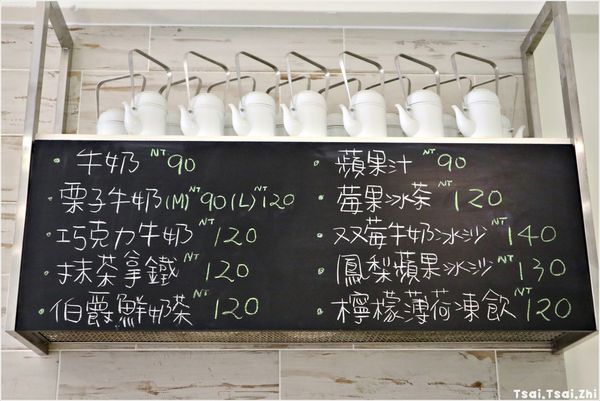 • 牛奶 NT 90
• 栗子牛奶(M) NT 90 (L) NT 120
• 巧克力牛奶 NT 120
• 抹茶拿鐵 NT 120
• 伯爵鮮奶茶 NT 120
• 蘋果汁 NT 90
• 莓果冰茶 NT 120
• 双莓牛奶冰沙 NT 140
• 鳳梨蘋果冰沙 NT 130
• 檸檬薄荷凍飲 NT 120
Tsai.Tsai.Zhi